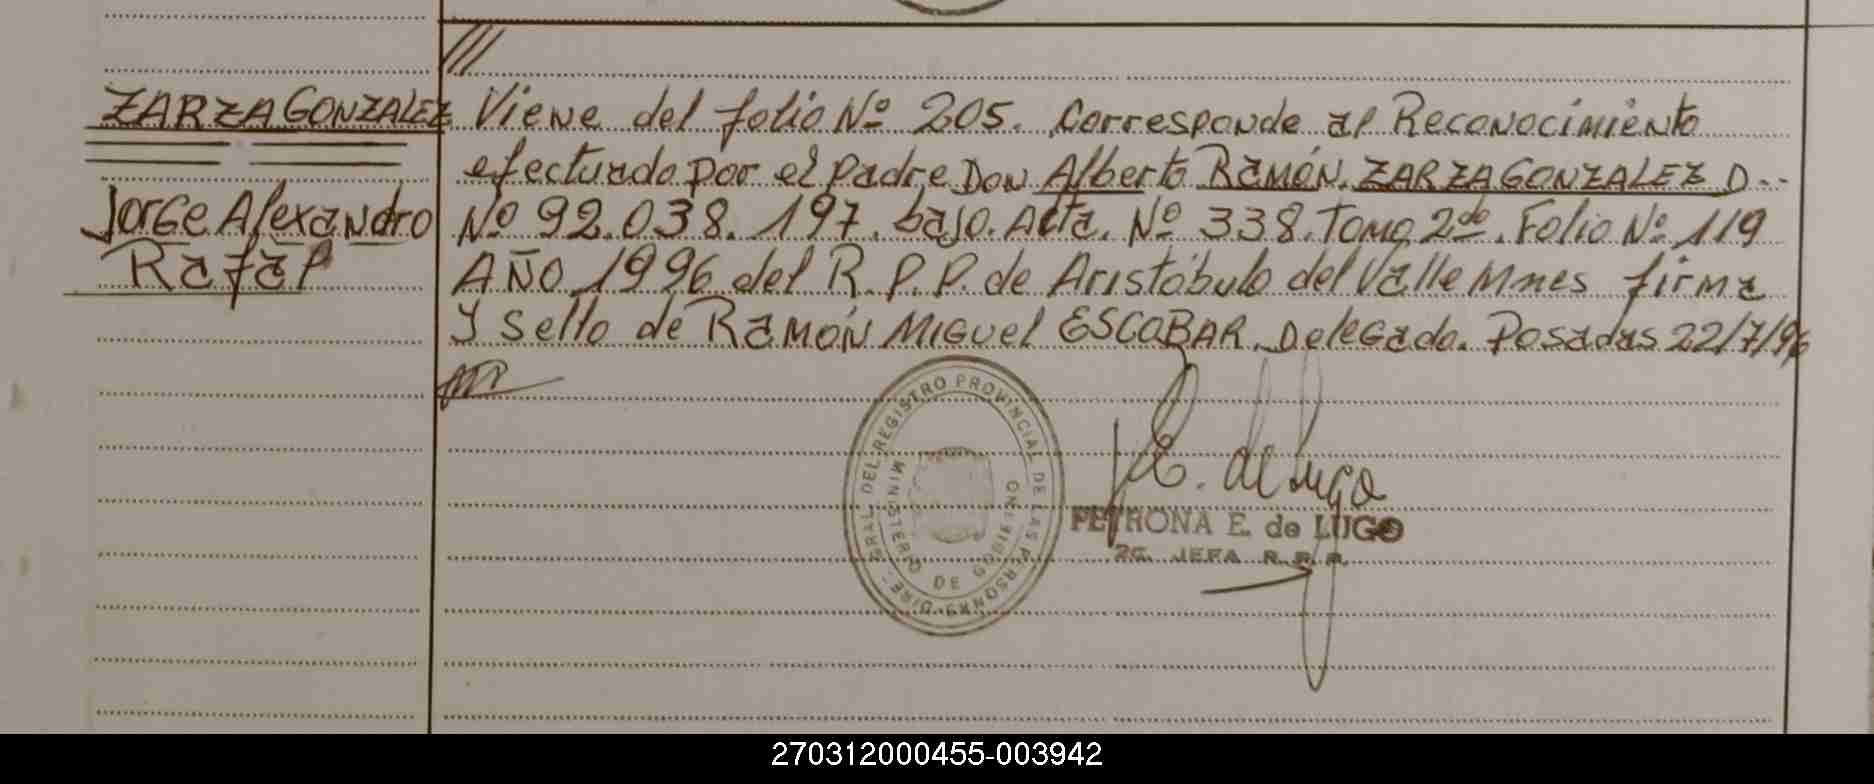 ///
ZARZA GONZALEZ
Jorge Alexandro
Rafael
Viene del folio Nº 205. Corresponde al Reconocimiento
efectuado por el padre Don Alberto Ramón. ZARZA GONZALEZ D..
Nº 92.038.197. bajo. Acta. Nº 338. Tomo 2do. Folio Nº 119
AÑO 1996 del R.P.P. de Aristóbulo del Valle Mnes firma
y sello de RAMÓN MIGUEL ESCOBAR. Delegado. Posadas 22/7/96
DIRE. GRAL. DEL REGISTRO PROVINCIAL DE LAS PERSONAS
MINISTERIO DE GOBIERNO
P.E. de Lugo
PETRONA E. de LUGO
2a. JEFA R.P.P.
270312000455-003942